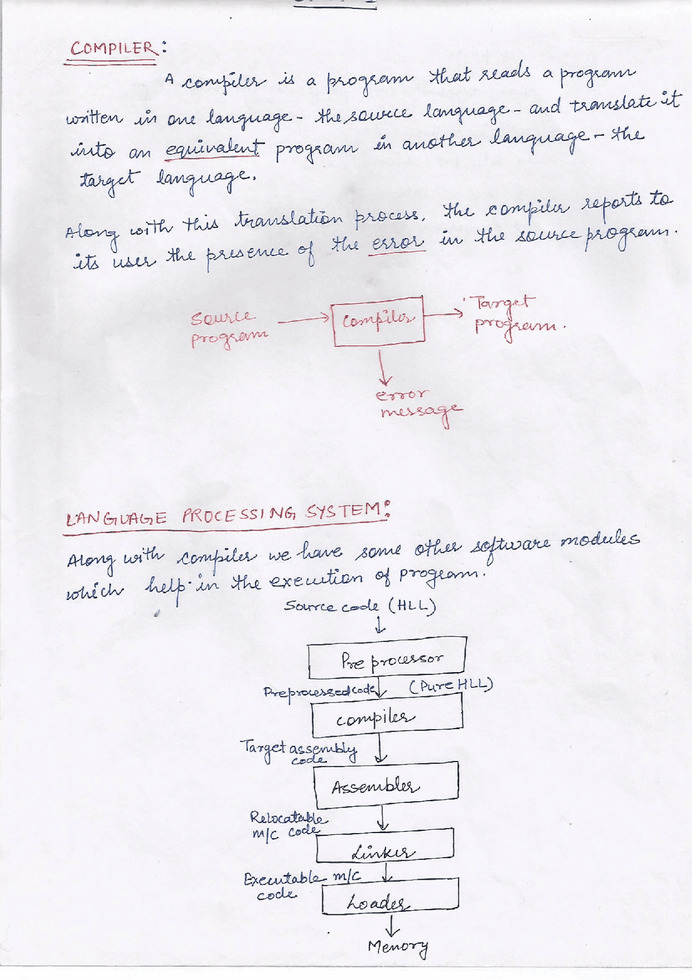 COMPILER:
A compiler is a program that reads a program
written in one language - the source language - and translate it
into an equivalent program in another language - the
target language.
Along with this translation process, the compiler reports to
its user the presence of the error in the source program.
Source program
compiler
Target program.
error message
LANGUAGE PROCESSING SYSTEM:
Along with compiler we have some other software modules
which help in the execution of program.
Source code (HLL)
Preprocessor
Preprocessed code (Pure HLL)
compiler
Target assembly code
Assembler
Relocatable m/c code
Linker
Executable m/c code
Loader
Memory